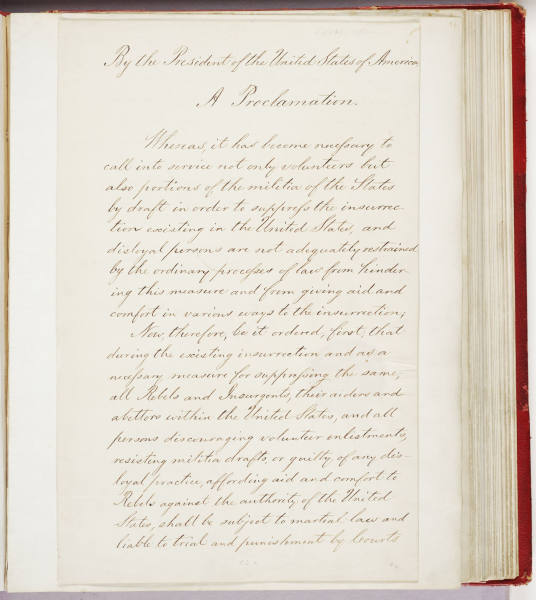 By the President of the United States of America
A Proclamation.
Whereas, it has become necessary to
call into service not only volunteers but
also portions of the militia of the States
by draft in order to suppress the insurrec-
tion existing in the United States, and
disloyal persons are not adequately restrained
by the ordinary processes of law from hinder-
ing this measure and from giving aid and
comfort in various ways to the insurrection;
Now, therefore, be it ordered, first, that
during the existing insurrection and as a
necessary measure for suppressing the same,
all Rebels and Insurgents, their aiders and
abettors within the United States, and all
persons discouraging volunteer enlistments,
resisting militia drafts, or guilty of any dis-
loyal practice, affording aid and comfort to
Rebels against the authority of the United
States, shall be subject to martial law and
liable to trial and punishment by Courts